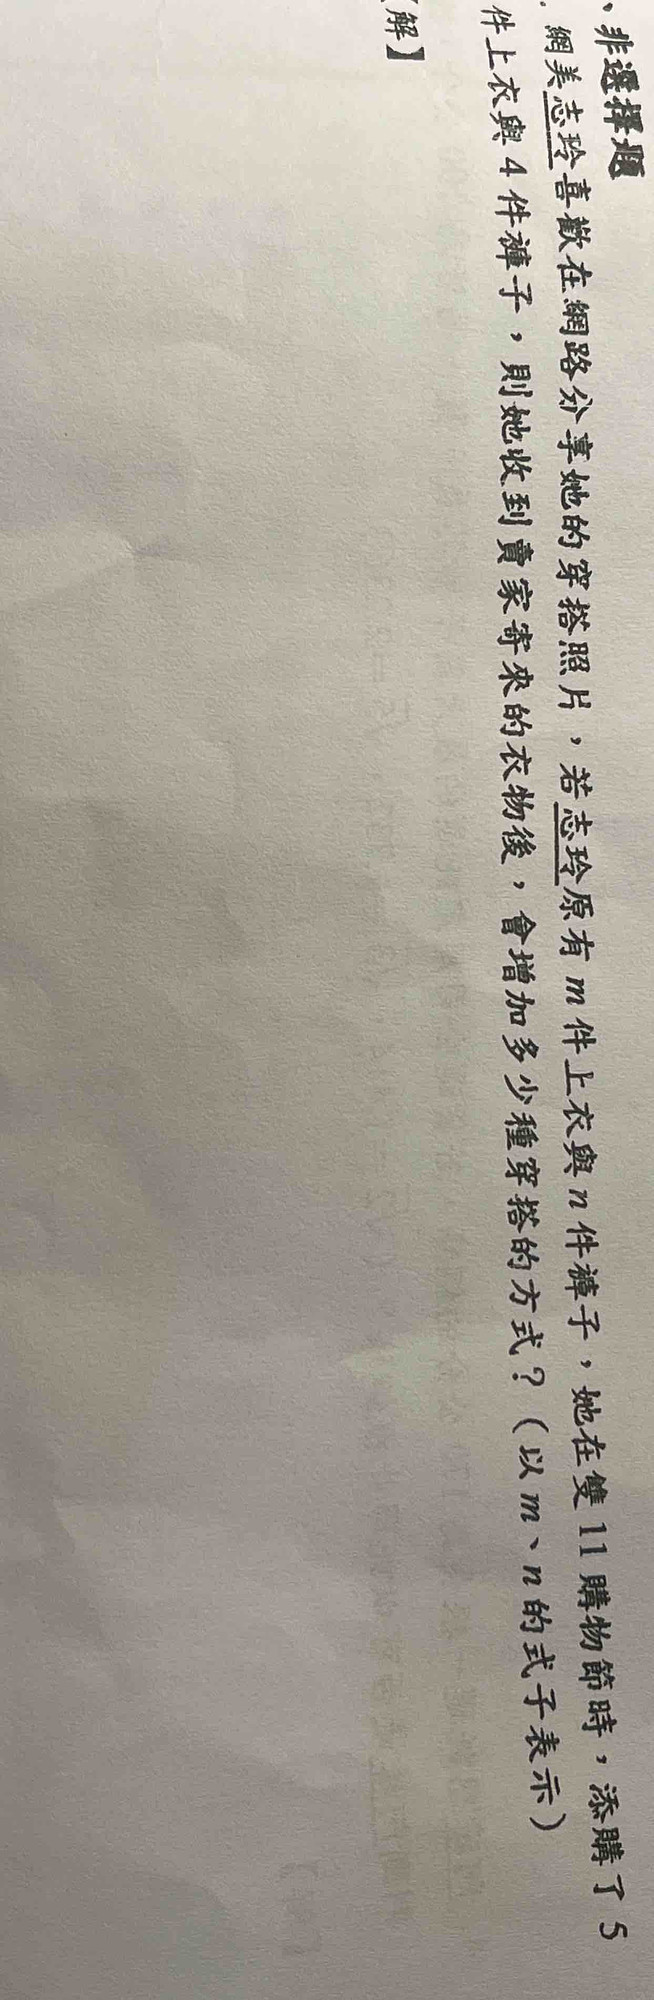 、非選擇題
. 網美志玲喜歡在網路分享她的穿搭照片，若志玲原有 m 件上衣與 n 件褲子，她在雙 11 購物節時，添購了 5
件上衣與 4 件褲子，則她收到賣家寄來的衣物後，會增加多少種穿搭的方式？（以 m、n 的式子表示）
解】